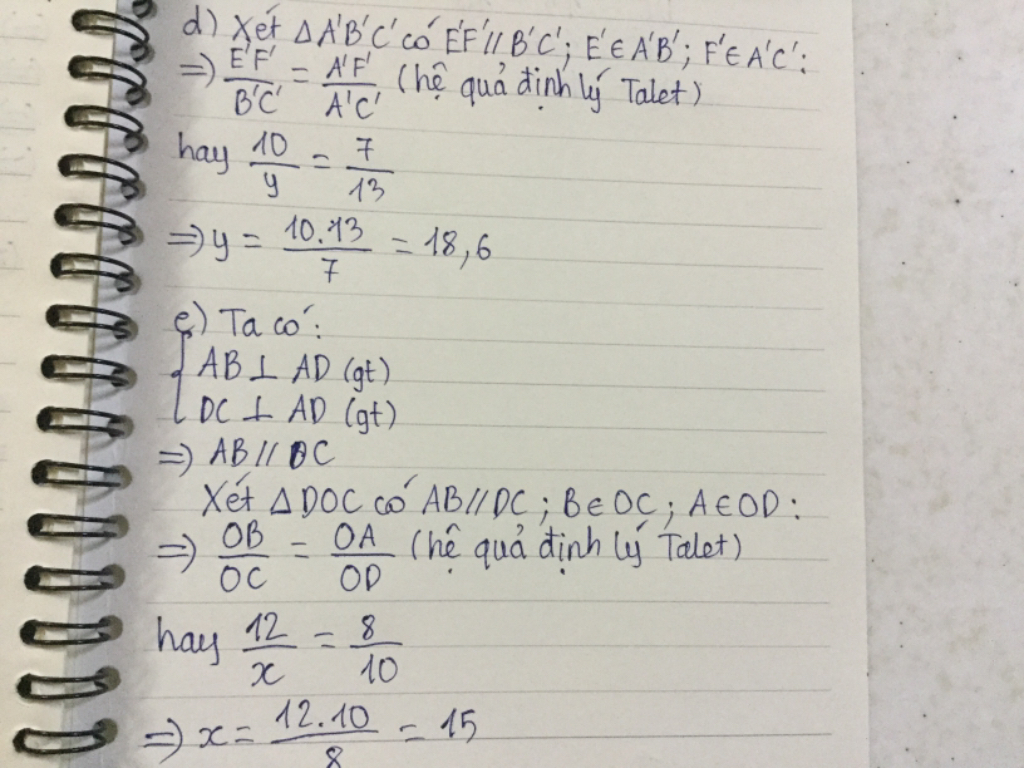 d) Xét ΔA'B'C' có E'F' // B'C'; E' ∈ A'B'; F' ∈ A'C':
⇒) E'F'/B'C' = A'F'/A'C' (hệ quả định lý Talet)
hay 10/y = 7/13
⇒) y = 10.13/7 = 18,6
e) Ta có:
{ AB ⊥ AD (gt)
DC ⊥ AD (gt)
⇒) AB // DC
Xét ΔDOC có AB // DC; B ∈ OC; A ∈ OD:
⇒) OB/OC = OA/OD (hệ quả định lý Talet)
hay 12/x = 8/10
⇒) x = 12.10/8 = 15